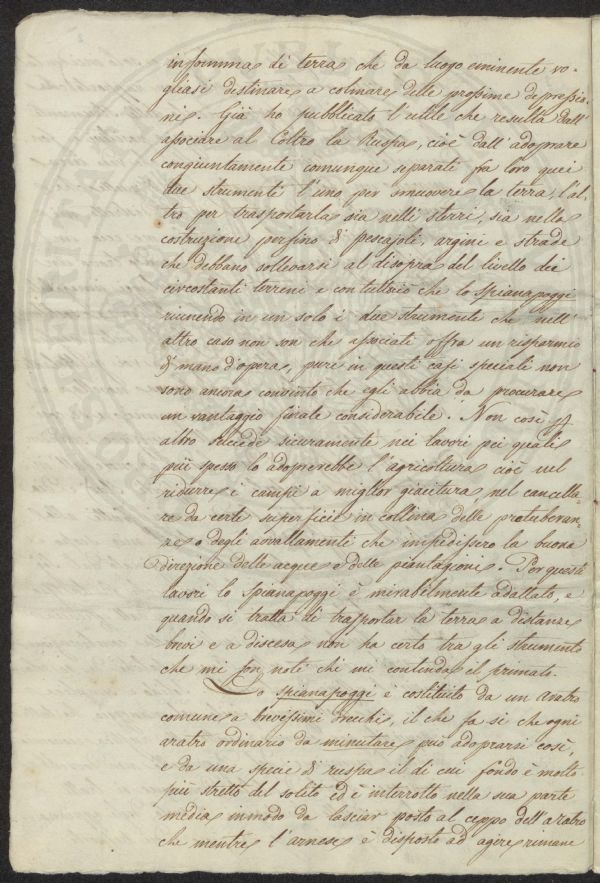 in somma di terra che da luogo eminente vo-
gliasi destinare a colmare delle prossime depressio-
ni. Già ho pubblicato l'utile che resulta dall'
associare al Coltro la Ruspa, cioè dall'adoprare
congiuntamente comunque separati fra loro quei
due strumenti l'uno per smuovere la terra, l'al-
tro per trasportarla sia nelli sterri, sia nella
costruzione perfino di pescajoli, argini e strade
che debbano sollevarsi al disopra del livello dei
circostanti terreni e con tuttociò che lo spianapoggi
riunendo in un solo i due strumenti che nell'
altro caso non son che associati offra un risparmio
di mano d'opera, pure in questi casi speciali non
sono ancora convinto che egli abbia da procurare
un vantaggio finale considerabile. Non così per
altro succede sicuramente nei lavori pei quali
più spesso lo adoprerebbe l'agricoltura cioè nel
ridurre i campi a miglior giacitura nel cancella-
re da certe superficie in collina delle protuberan-
ze o degli avvallamenti che impedissero la buona
direzione delle acque o delle piantagioni. Per questi
lavori lo spianapoggi è mirabilmente adattato, e
quando si tratta di trasportar la terra a distanze
brevi e a discesa non ha certo tra gli strumenti
che mi son noti chi mi contenda il primato.
Lo spianapoggi è costituito da un aratro
comune a brevissimi orecchi, il che fa sì che ogni
aratro ordinario da minutare può adoprarsi così,
e da una specie di ruspa il di cui fondo è molto
più stretto del solito ed è interrotto nella sua parte
media in modo da lasciar posto al ceppo dell'aratro
che mentre l'arnese è disposto ad agire rimane